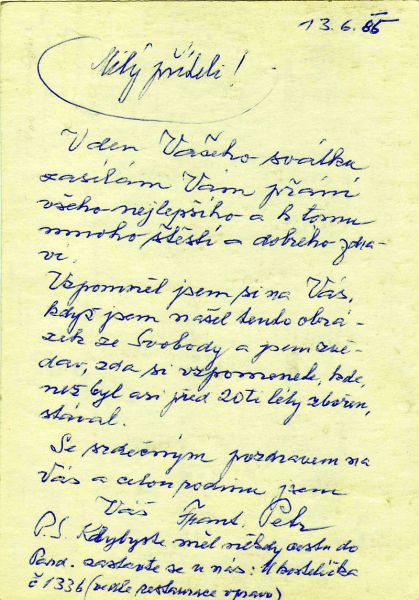 13.6.86
Milý příteli!
V den Vašeho svátku
zasílám Vám přání
všeho nejlepšího a k tomu
mnoho štěstí a dobrého zdra-
ví.
Vzpomněl jsem si na Vás,
když jsem našel tento obrá-
zek ze Svobody a jsem zvě-
dav, zda si vzpomenete, kde,
než byl asi před 20ti léty zbořen,
stával.
Se srdečným pozdravem na
Vás a celou rodinu jsem
Váš Frant. Petr
P.S. Kdybyste měl někdy cestu do
Pard. zastavte se u nás: U kostelíčka
č 1336 (vedle restaurace vpravo)